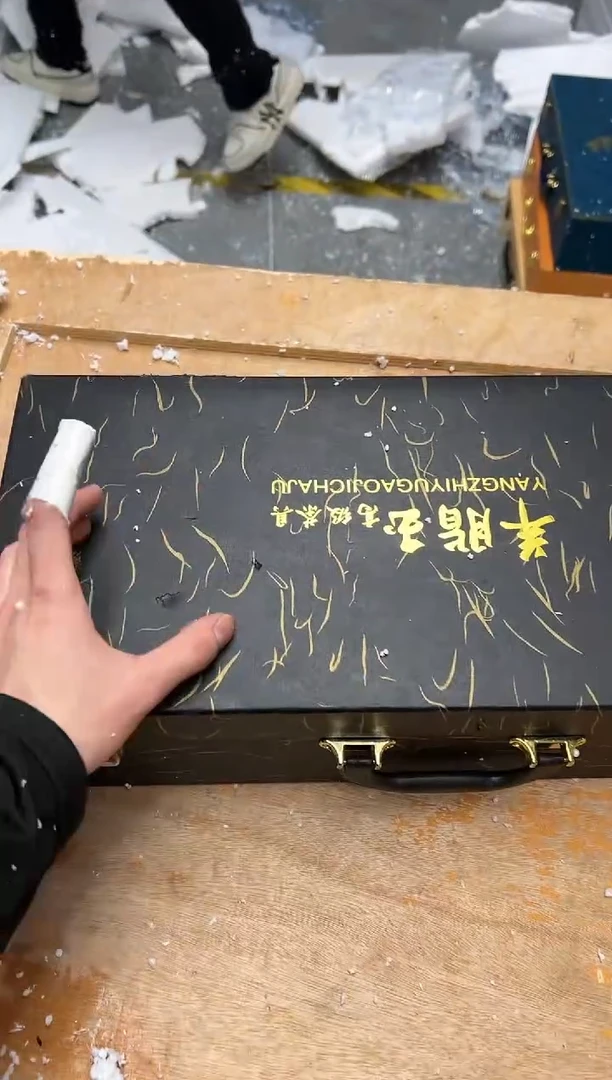 羊脂玉高级茶具
YANGZHIYUGAOJICHAJU